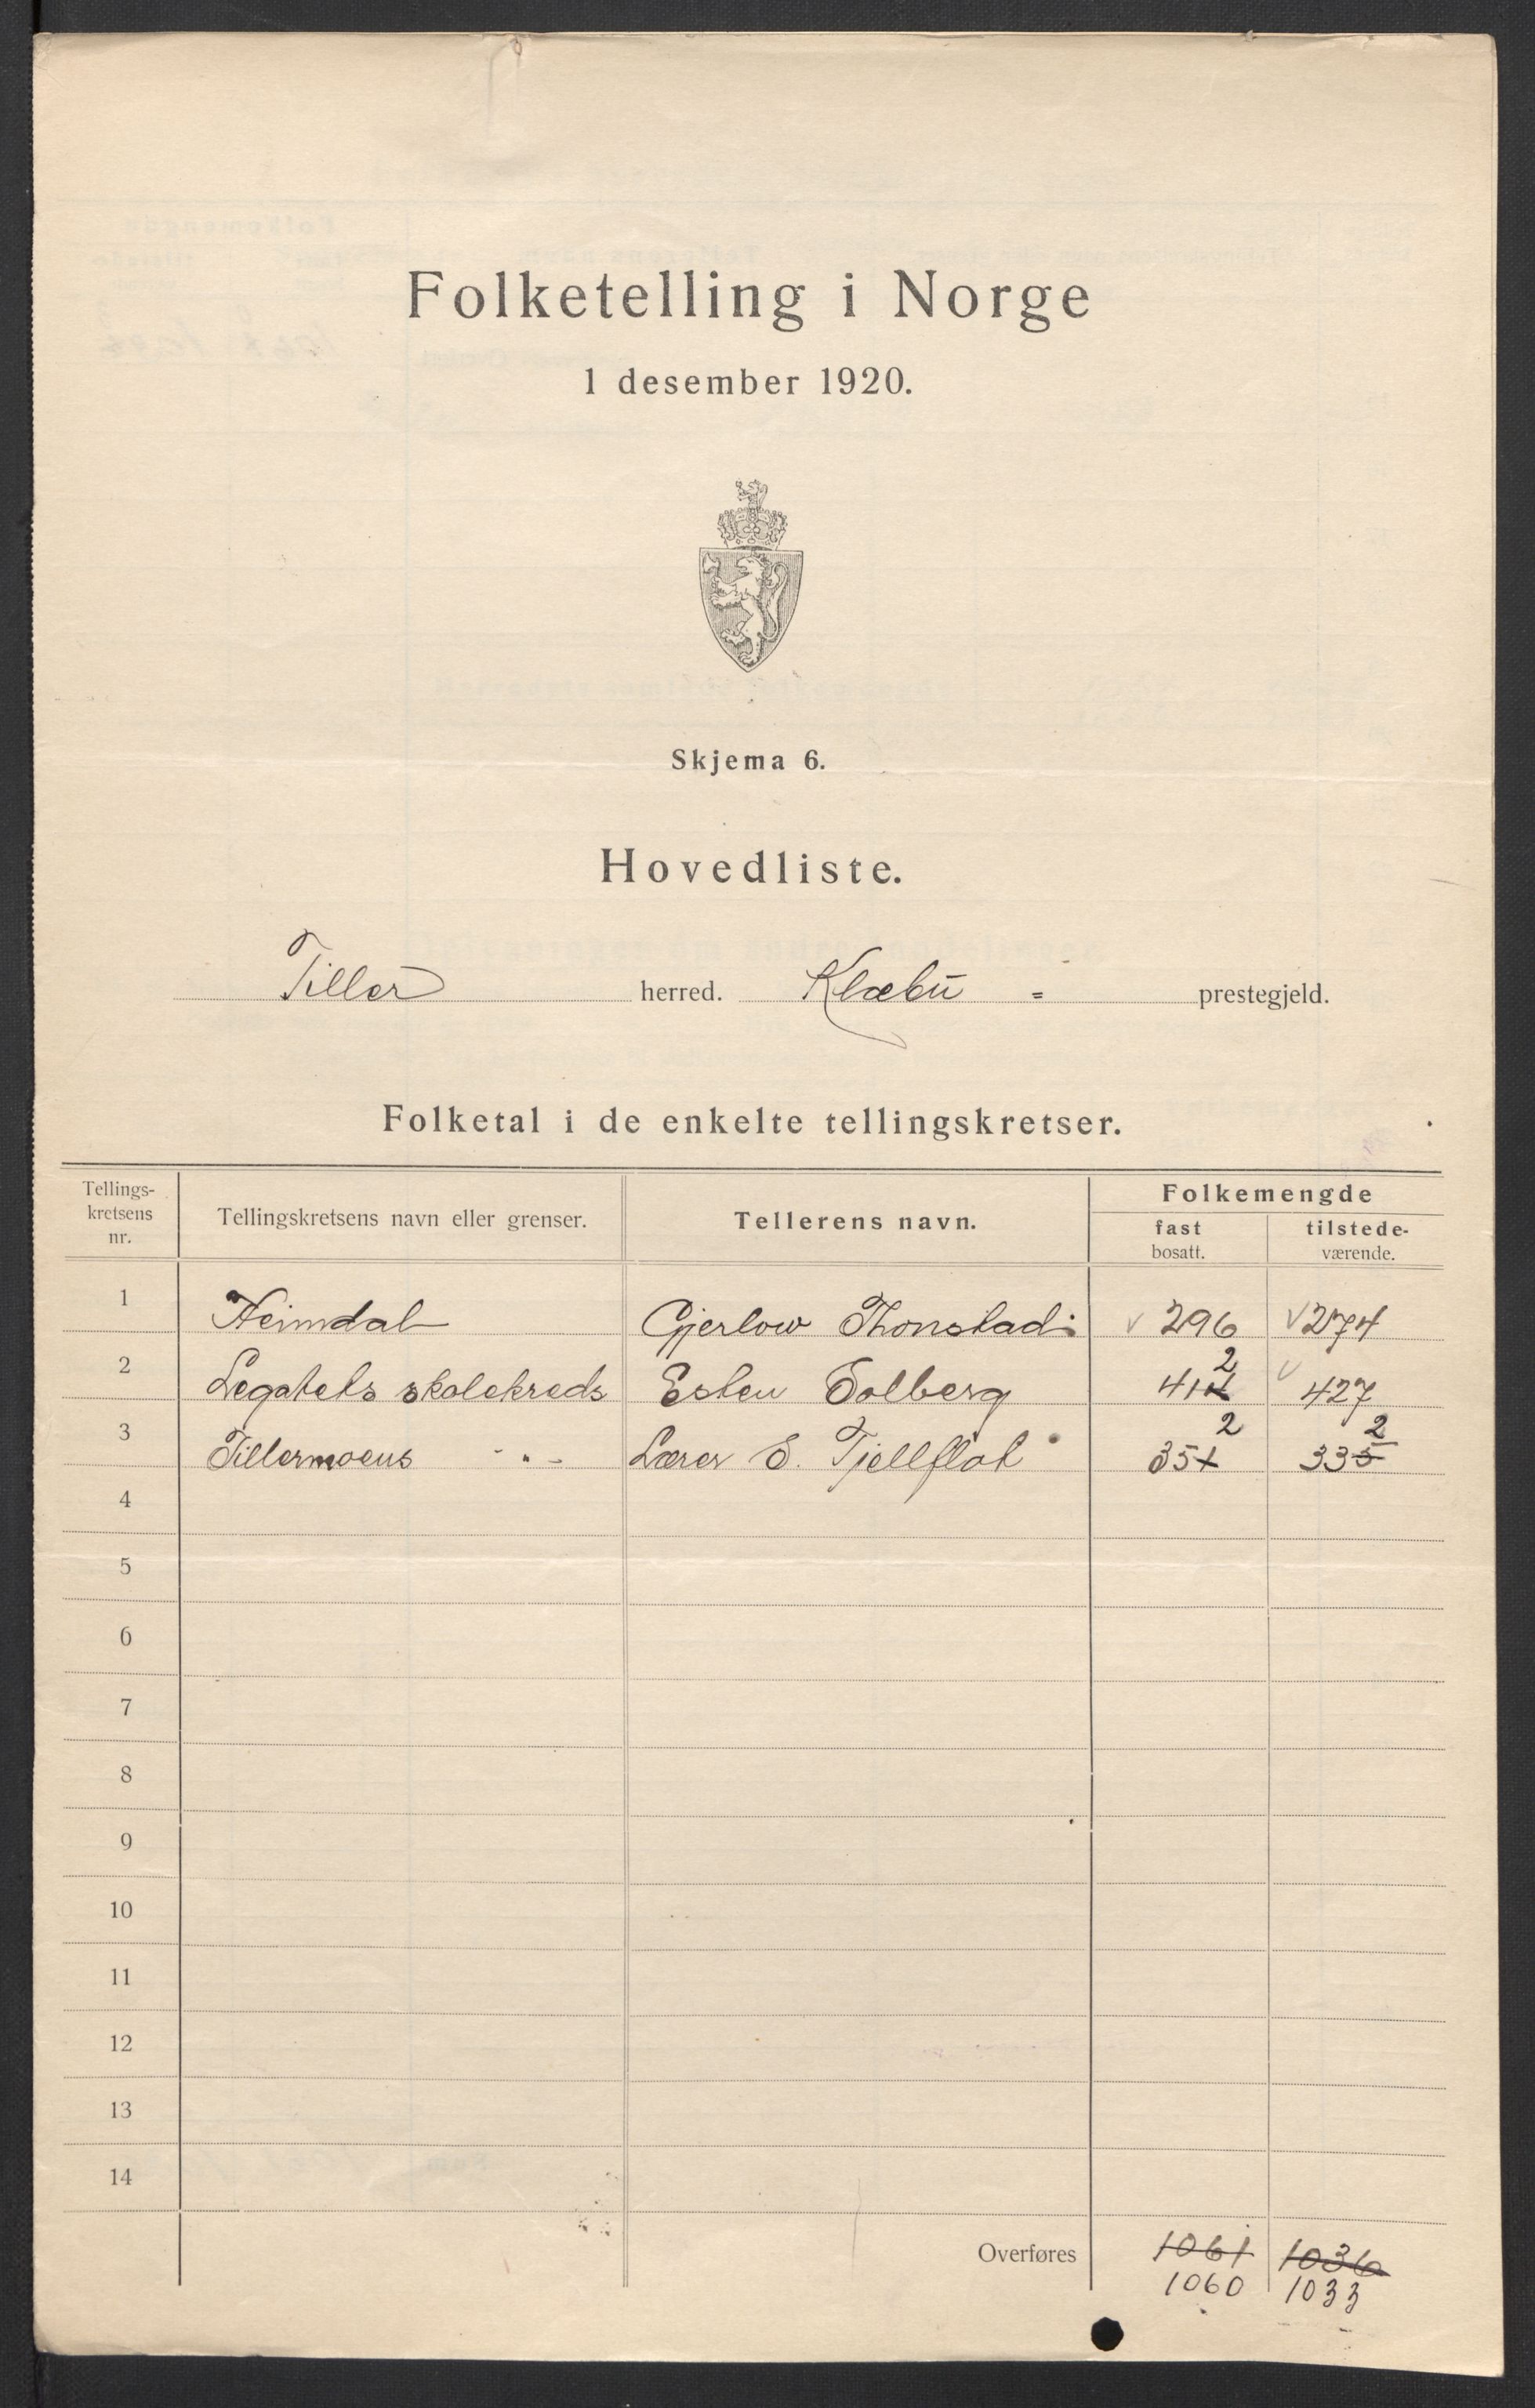 Folketelling i Norge
1 desember 1920.
Skjema 6.
Hovedliste.
Tiller herred. Klæbu = prestegjeld.
Folketal i de enkelte tellingskretser.
Tellings-
kretsens
nr.
Tellingskretsens navn eller grenser.
Tellerens navn.
Folkemengde
fast
bosatt.
tilstede-
værende.
1 Heimdal Gjerlow Thonstad 296 274
2 Legatets skolekreds Esten Solberg 412 427
3 Tillermoens - " - Lærer E. Tjellflot 352 332
4
5
6
7
8
9
10
11
12
13
14
Overføres 1061 1036
1060 1033